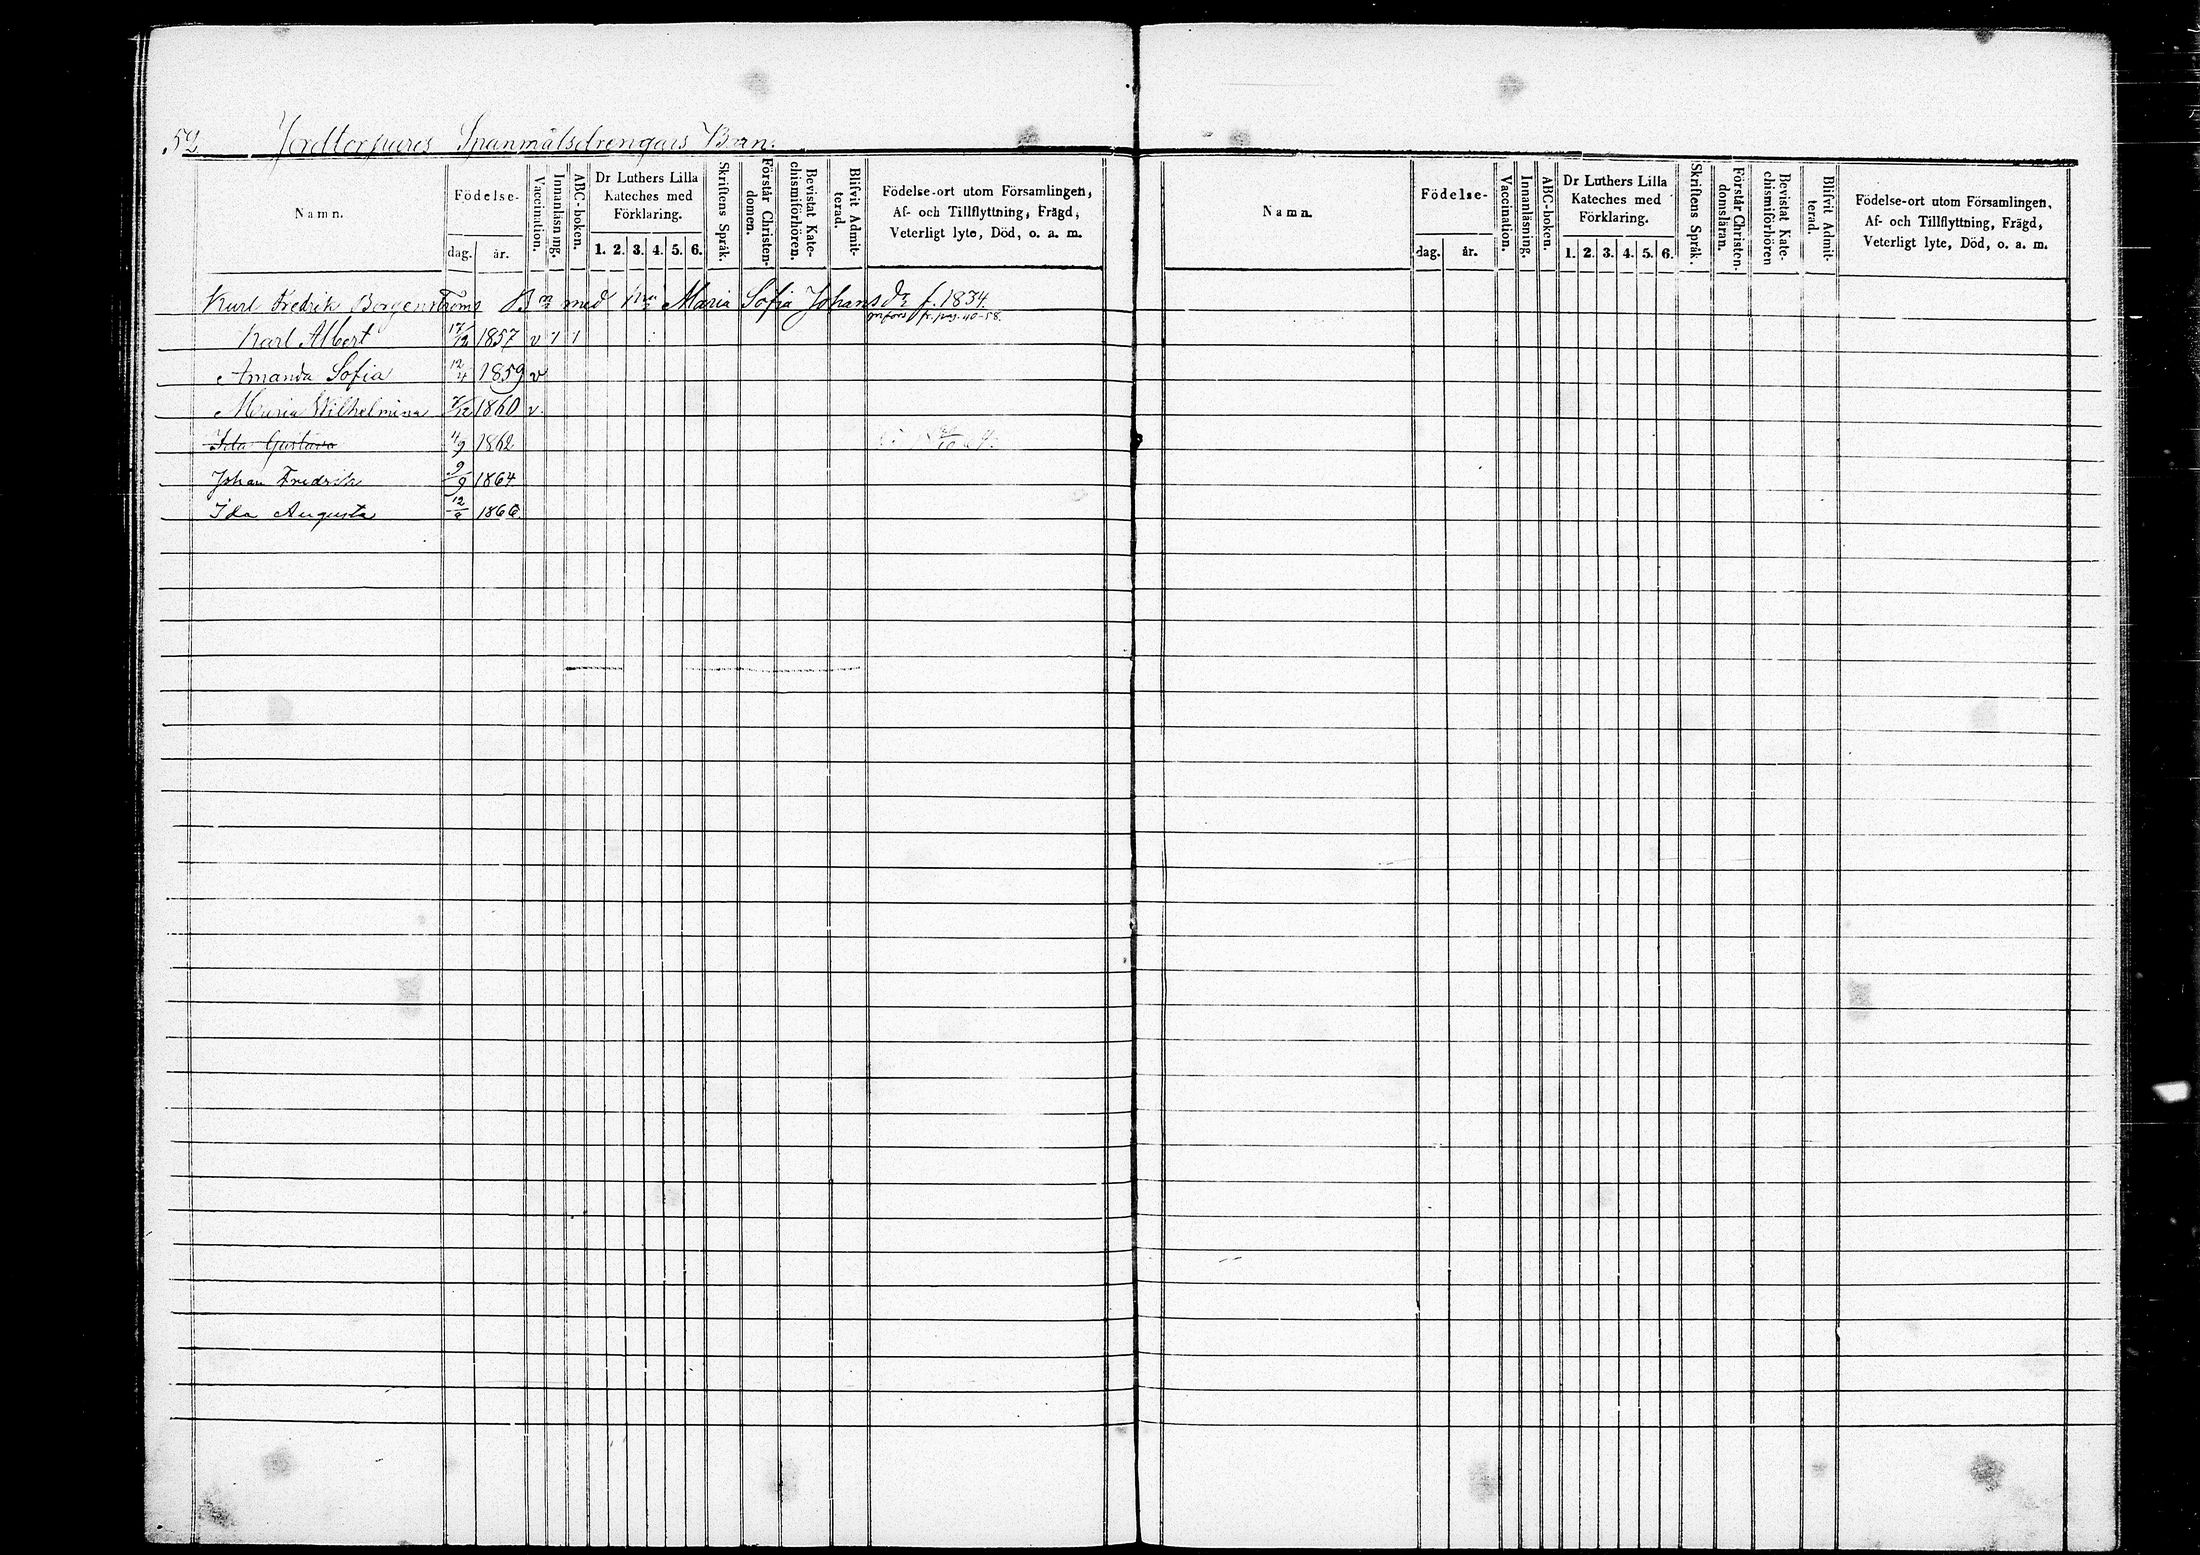 52 Spanmålsdrengars Barn.
Namn.
Födelse-
dag. år.
Vaccination.
Innanläsning.
ABC-boken.
Dr Luthers Lilla
Kateches med
Förklaring.
1. 2. 3. 4. 5. 6.
Skriftens Språk.
Förstår Christen-
domen.
Bevistat Kate-
chismiförhören.
Blifvit Admit-
terad.
Födelse-ort utom Församlingen,
Af- och Tillflyttning, Frägd,
Veterligt lyte, Död, o. a. m.
Karl Fredrik Borgenströms Bn med Hu Maria Sofia Johansdr f. 1834.
fr. pag. 40-58.
Karl Albert 17/12 1857 v 1 1
Amanda Sofia 12/4 1859 v
Maria Wilhelmina 7/12 1860 v.
Ida Gustava 11/9 1862
Johan Fredrik 9/9 1864
Ida Augusta 12/8 1866.
Namn.
Födelse-
dag. år.
Vaccination.
Innanläsning.
ABC-boken.
Dr Luthers Lilla
Kateches med
Förklaring.
1. 2. 3. 4. 5. 6.
Skriftens Språk.
Förstår Christen-
domsläran.
Bevistat Kate-
chismiförhören
Blifvit Admit-
terad.
Födelse-ort utom Församlingen,
Af- och Tillflyttning, Frägd,
Veterligt lyte, Död, o. a. m.